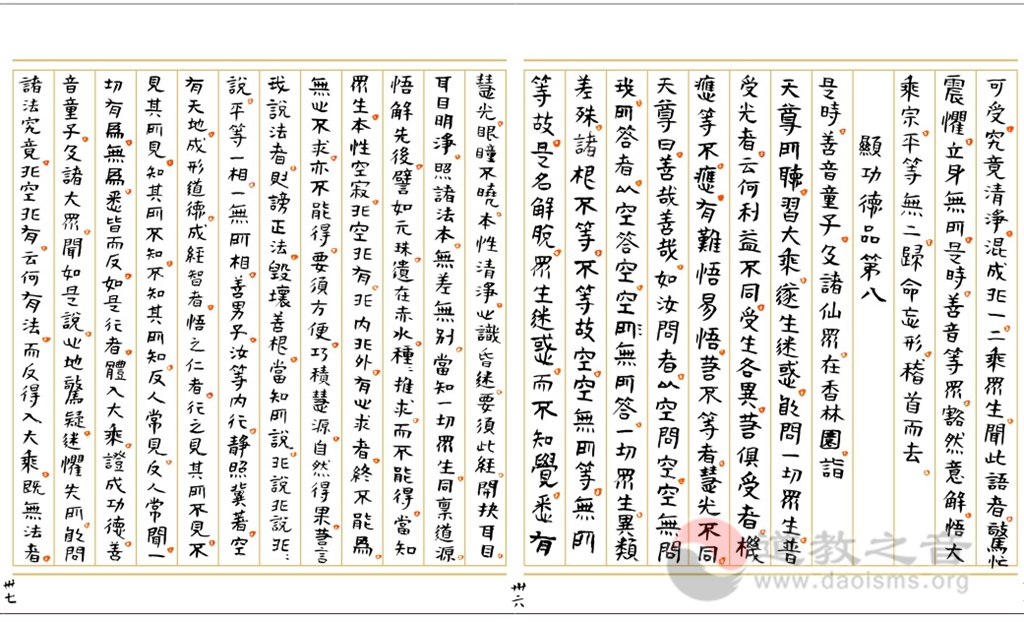 可受究竟清淨混成非一二乘眾生聞此語者驚忙
震懼立身無所是時善音等眾豁然意解悟大
乘宗平等無二歸命忘形稽首而去
顯功德品第八
是時善音童子及諸仙眾在香林園詣
天尊所聽習大乘遂生迷惑敢問一切眾生普
受光者云何利益不同受生各異若俱受者機
應等不應有難悟易悟若不等者慧光不同
天尊曰善哉善哉如汝問者以空問空空無問
我所答者以空答空空所無所答一切眾生異類
差殊諸根不等不等故空空無所等無所
等故是名解脫眾生迷惑而不知覺悉有
卅六
慧光眼瞳不曉本性清淨心識昏迷要須此經開抉耳目
耳目明淨照諸法本無差無別當知一切眾生同稟道源
悟解先後譬如元珠遺在赤水種種推求而不能得當知
眾生本性空寂非空非有非內非外有心求者終不能為
無心不求亦不能得要須方便巧積慧源自然得果若言
我說法者則謗正法毀壞善根當知所說非說非說非非
說平等一相一無所相善男子汝等內行靜照冀著空
有天地成形道德成經智者悟之仁者行之見其所不見不
見其所見知其所不知不知其所知反人常見反人常聞一
切有為無為悉皆而反如是行者體入大乘證成功德善
音童子及諸大眾聞如是說心地驚疑迷懼失所敢問
諸法究竟非空非有云何有法而反得入大乘既無法者
卅七
道教之音
www.daoisms.org